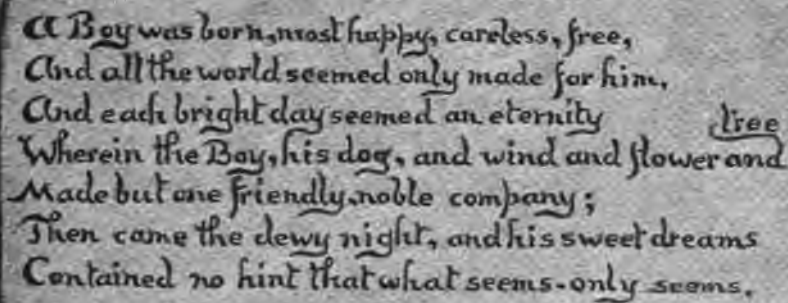 A Boy was born, most happy, careless, free,
And all the world seemed only made for him,
And each bright day seemed an eternity
Wherein the Boy, his dog, and wind and flower and tree
Made but one friendly, noble company;
Then came the dewy night, and his sweet dreams
Contained no hint that what seems-only seems.